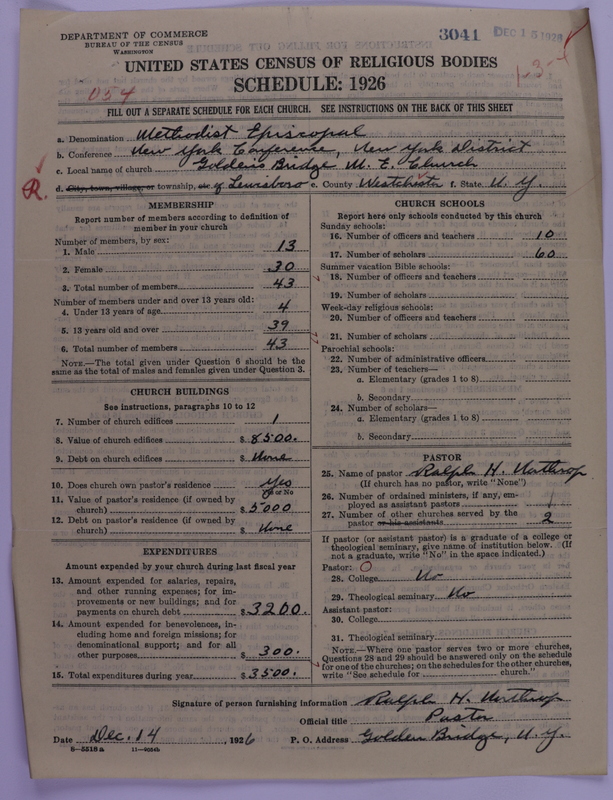 DEPARTMENT OF COMMERCE
BUREAU OF THE CENSUS
WASHINGTON
3041 DEC 15 1926
UNITED STATES CENSUS OF RELIGIOUS BODIES
SCHEDULE: 1926
054
FILL OUT A SEPARATE SCHEDULE FOR EACH CHURCH. SEE INSTRUCTIONS ON THE BACK OF THIS SHEET
a. Denomination Methodist Episcopal
b. Conference New York Conference, New York District
c. Local name of church Goldens Bridge M. E. Church
R.
d. City, town, village, or township, etc of Lewisboro e. County Westchester f. State N. Y.
MEMBERSHIP
Report number of members according to definition of
member in your church
Number of members, by sex:
1. Male 13
2. Female 30
3. Total number of members 43
Number of members under and over 13 years old:
4. Under 13 years of age 4
5. 13 years old and over 39
6. Total number of members 43
NOTE.—The total given under Question 6 should be the
same as the total of males and females given under Question 3.
CHURCH BUILDINGS
See instructions, paragraphs 10 to 12
7. Number of church edifices 1
8. Value of church edifices $ 8500.
9. Debt on church edifices $ None
10. Does church own pastor's residence Yes
Yes or No
11. Value of pastor's residence (if owned by
church) $ 5000
12. Debt on pastor's residence (if owned by
church) $ None
EXPENDITURES
Amount expended by your church during last fiscal year
13. Amount expended for salaries, repairs,
and other running expenses; for im-
provements or new buildings; and for
payments on church debt $ 3200.
14. Amount expended for benevolences, in-
cluding home and foreign missions; for
denominational support; and for all
other purposes $ 300.
15. Total expenditures during year $ 3500.
CHURCH SCHOOLS
Report here only schools conducted by this church
Sunday schools:
16. Number of officers and teachers 10
17. Number of scholars 60
Summer vacation Bible schools:
18. Number of officers and teachers
19. Number of scholars
Week-day religious schools:
20. Number of officers and teachers
21. Number of scholars
Parochial schools:
22. Number of administrative officers
23. Number of teachers—
a. Elementary (grades 1 to 8)
b. Secondary
24. Number of scholars—
a. Elementary (grades 1 to 8)
b. Secondary
PASTOR
25. Name of pastor Ralph H. Northrop
(If church has no pastor, write "None")
26. Number of ordained ministers, if any, em-
ployed as assistant pastors
27. Number of other churches served by the
pastor or his assistants 2
If pastor (or assistant pastor) is a graduate of a college or
theological seminary, give name of institution below. (If
not a graduate, write "No" in the space indicated.)
Pastor:
28. College No
29. Theological seminary No
Assistant pastor:
30. College
31. Theological seminary
NOTE.—Where one pastor serves two or more churches,
Questions 28 and 29 should be answered only on the schedule
for one of the churches; on the schedules for the other churches,
write "See schedule for church."
Signature of person furnishing information Ralph H. Northrop
Official title Pastor
Date Dec. 14, 1926 P. O. Address Golden Bridge, N. Y.
8—5518a 11—9054b